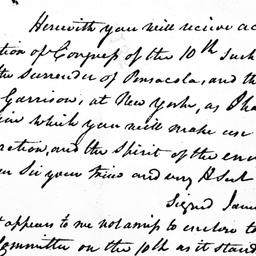 Herewith you will recieve ac
tion of Congress of the 10th
the Surrender of Pensacola, and th
Garrison, at New York, as
which you will make use
cretion, and the Spirit of the en
Sir your friend and
Signed
t appears to me not amiss to enclose to
Committee on the 10th as it stand